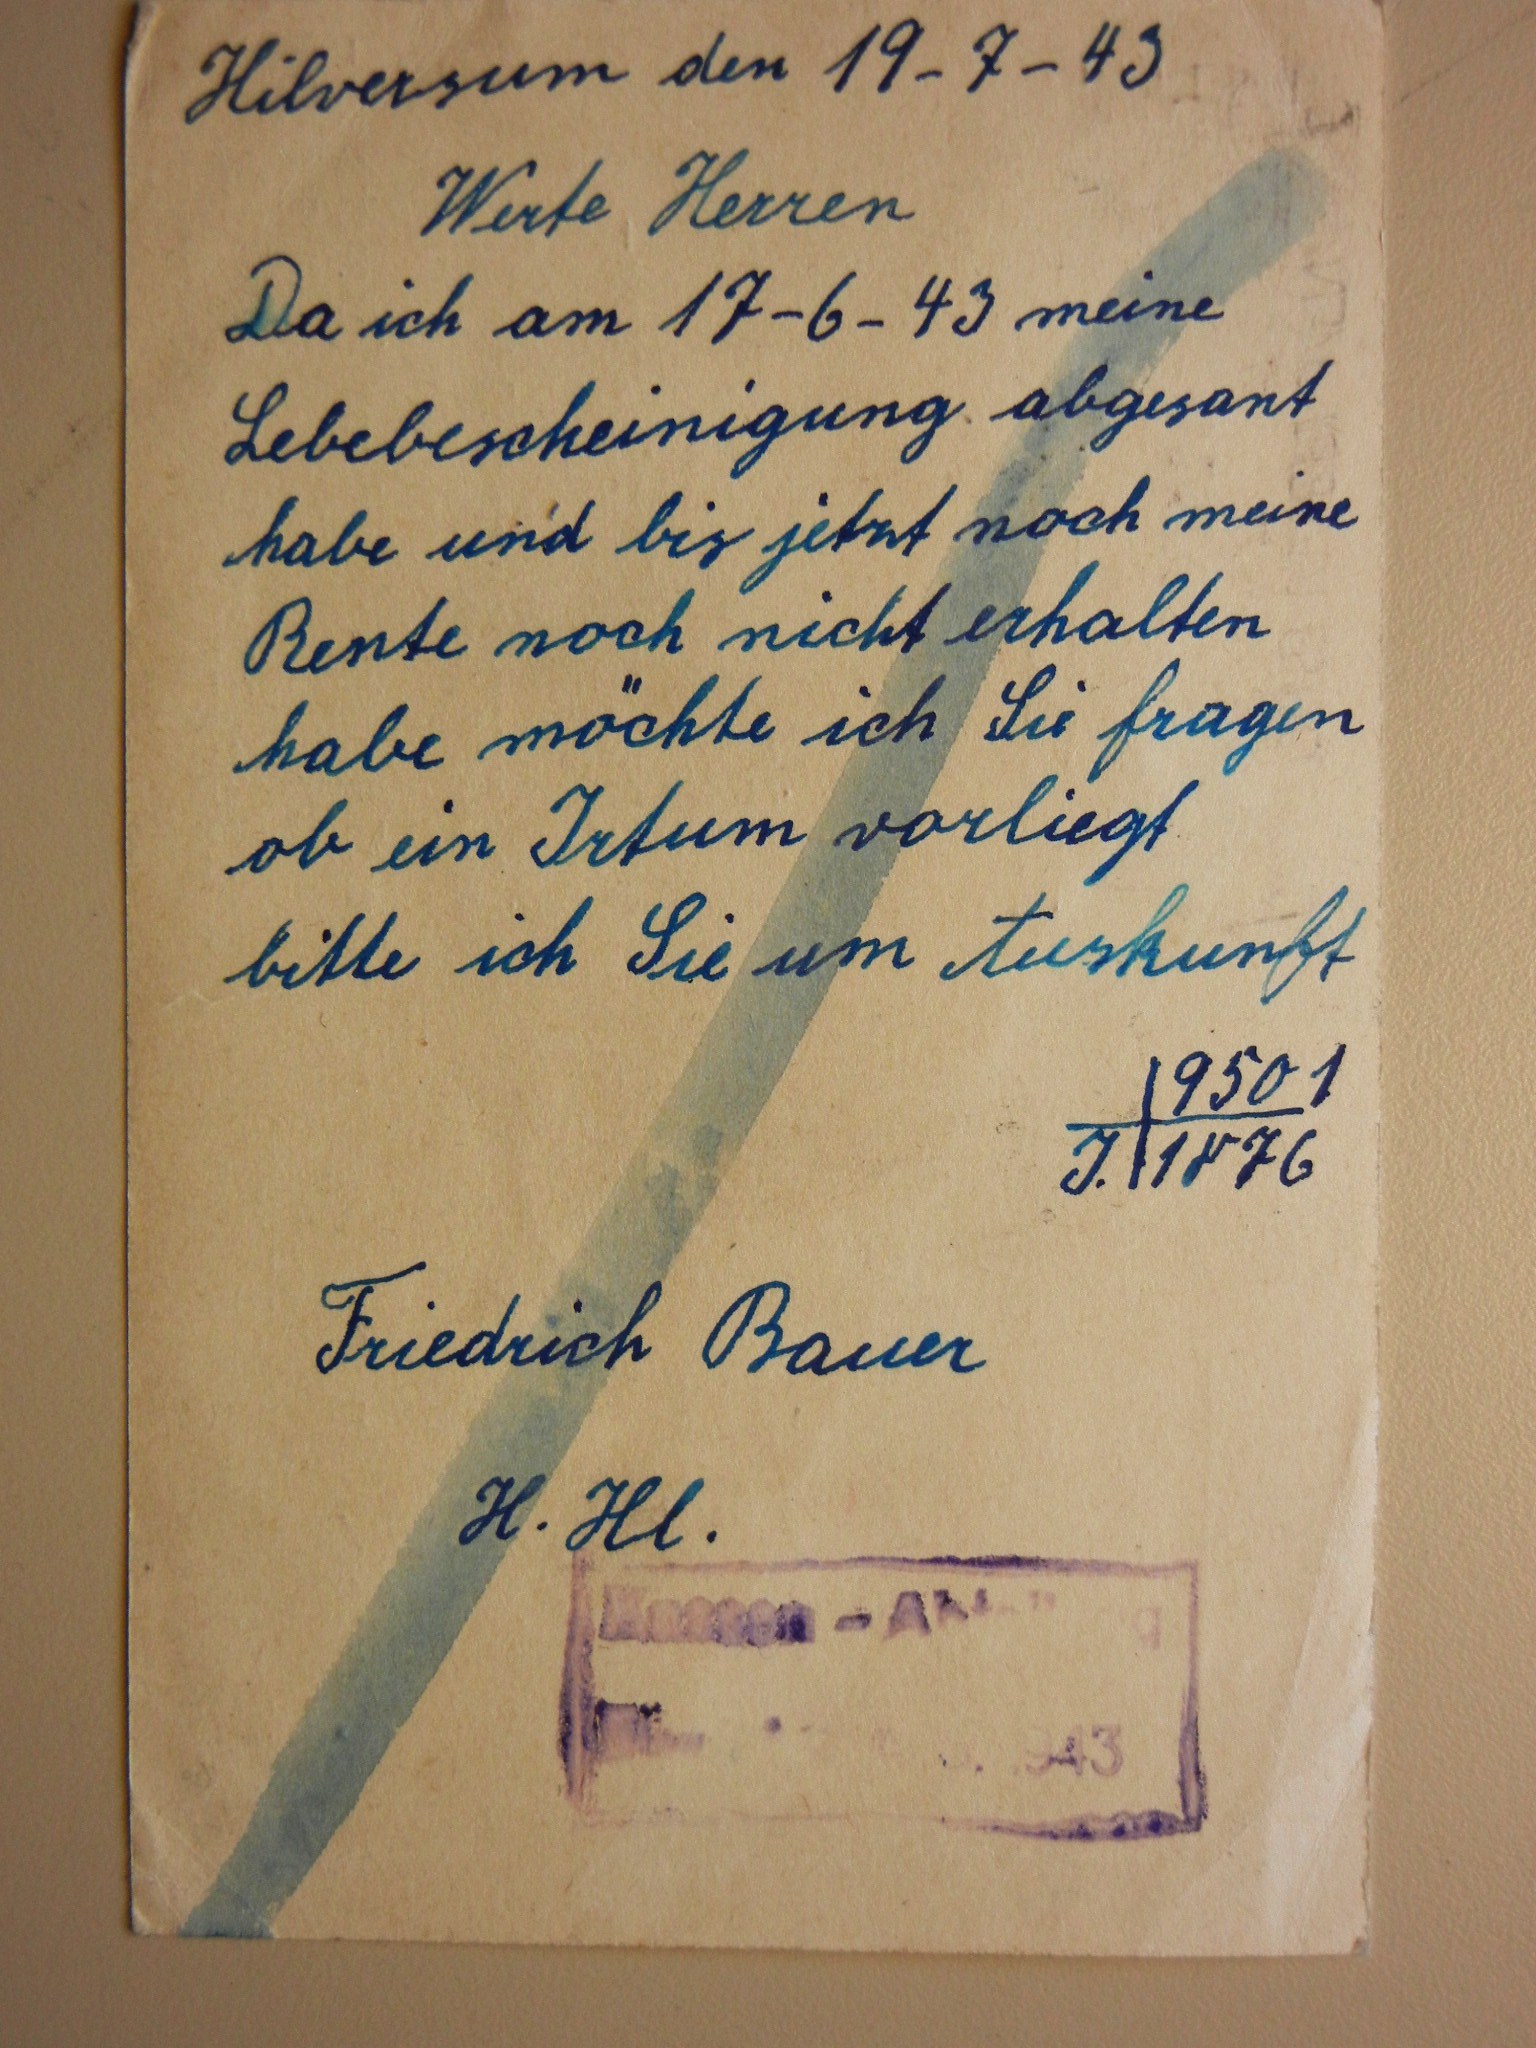 Hilversum den 19-7-43
Werte Herren
Da ich am 17-6-43 meine
Lebebescheinigung abgesant
habe und bis jetzt noch meine
Rente noch nicht erhalten
habe möchte ich Sie fragen
ob ein Irtum vorliegt
bitte ich Sie um Auskunft
9501
J. 1876
Friedrich Bauer
H. Hl.